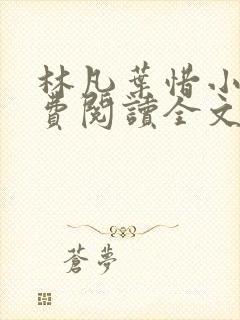 林凡葉惜小
費閱讀全文
蒼夢